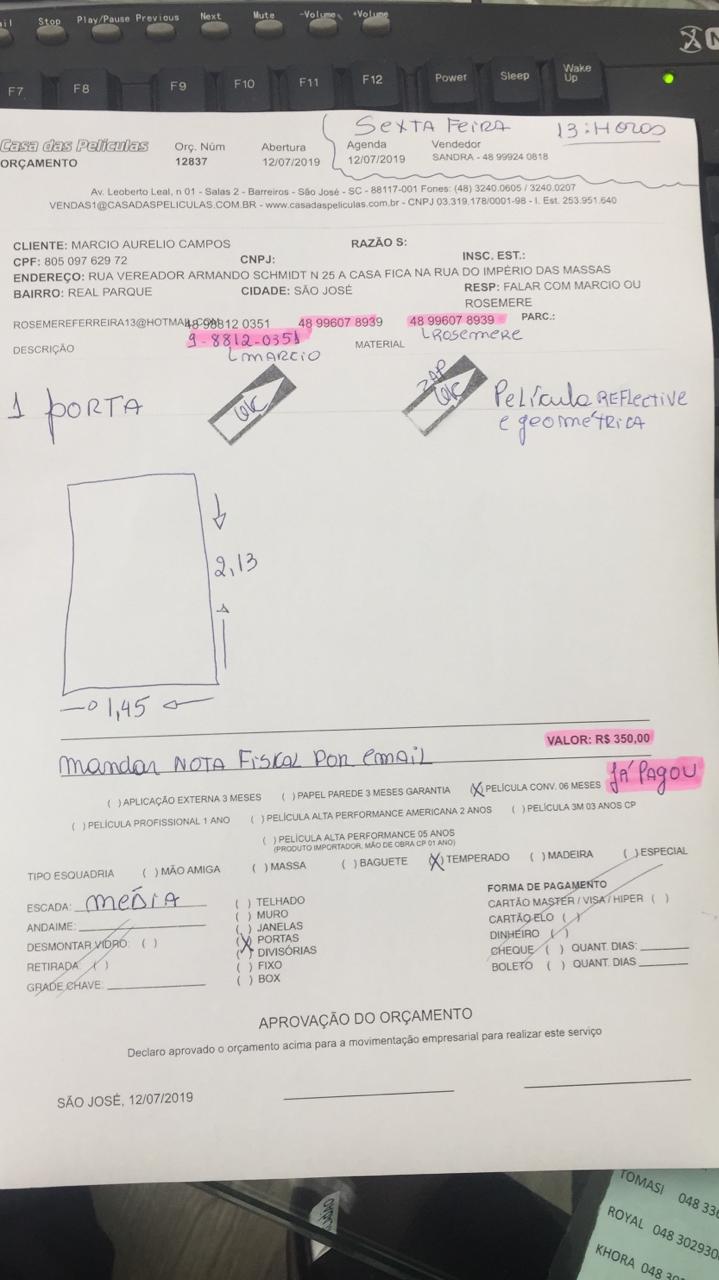 Stop Play/Pause Previous Next Mute -Volume +Volume
F7 F8 F9 F10 F11 F12 Power Sleep Wake Up
SEXTA FEIRA 13:HORAS
Casa das Películas Orç. Núm Abertura Agenda Vendedor
ORÇAMENTO 12837 12/07/2019 12/07/2019 SANDRA - 48 99924 0818
Av. Leoberto Leal, n 01 - Salas 2 - Barreiros - São José - SC - 88117-001 Fones: (48) 3240.0605 / 3240.0207
VENDAS1@CASADASPELICULAS.COM.BR - www.casadaspeliculas.com.br - CNPJ 03.319.178/0001-98 - I. Est. 253.951.640
CLIENTE: MARCIO AURELIO CAMPOS RAZÃO S:
CPF: 805 097 629 72 CNPJ: INSC. EST.:
ENDEREÇO: RUA VEREADOR ARMANDO SCHMIDT N 25 A CASA FICA NA RUA DO IMPÉRIO DAS MASSAS
BAIRRO: REAL PARQUE CIDADE: SÃO JOSÉ RESP: FALAR COM MARCIO OU
ROSEMERE
ROSEMEREFERREIRA13@HOTMAIL.COM 48 98812 0351 48 99607 8939 48 99607 8939 PARC.:
9-8812-0351 Rosemere
DESCRIÇÃO MARCIO MATERIAL
1 PORTA OK ZAP OK Película REFLECTIVE
e geométrica
2,13
1,45
VALOR: R$ 350,00
Mandar NOTA FISKAL POR email JÁ PAGOU
( ) APLICAÇÃO EXTERNA 3 MESES ( ) PAPEL PAREDE 3 MESES GARANTIA (X) PELÍCULA CONV. 06 MESES
( ) PELÍCULA PROFISSIONAL 1 ANO ( ) PELÍCULA ALTA PERFORMANCE AMERICANA 2 ANOS ( ) PELÍCULA 3M 03 ANOS CP
( ) PELÍCULA ALTA PERFORMANCE 05 ANOS
(PRODUTO IMPORTADOR, MÃO DE OBRA CP 01 ANO)
TIPO ESQUADRIA ( ) MÃO AMIGA ( ) MASSA ( ) BAGUETE (X) TEMPERADO ( ) MADEIRA ( ) ESPECIAL
ESCADA: MEDIA
ANDAIME:
DESMONTAR VIDRO: ( )
RETIRADA: ( )
GRADE CHAVE:
( ) TELHADO
( ) MURO
( ) JANELAS
(X) PORTAS
( ) DIVISÓRIAS
( ) FIXO
( ) BOX
FORMA DE PAGAMENTO
CARTÃO MASTER / VISA / HIPER ( )
CARTÃO ELO ( )
DINHEIRO ( )
CHEQUE ( ) QUANT. DIAS:
BOLETO ( ) QUANT. DIAS
APROVAÇÃO DO ORÇAMENTO
Declaro aprovado o orçamento acima para a movimentação empresarial para realizar este serviço
SÃO JOSÉ, 12/07/2019
TOMASI 048
ROYAL 048
KHORA 048